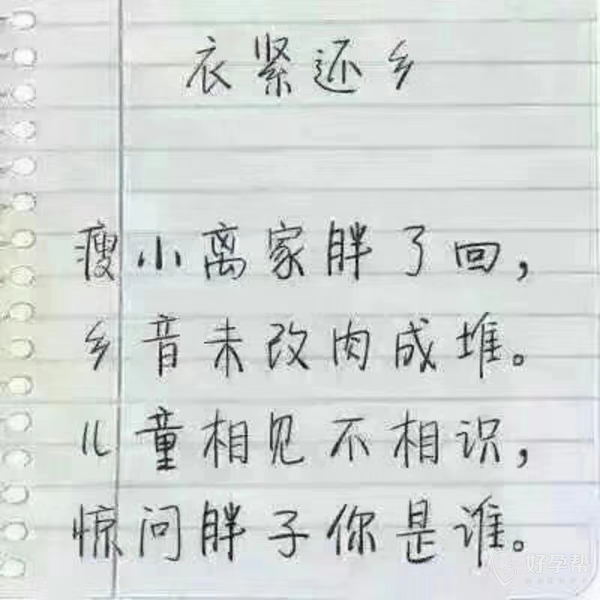 衣紧还乡
瘦小离家胖了回，
乡音未改肉成堆。
儿童相见不相识，
惊问胖子你是谁。
好孕帮